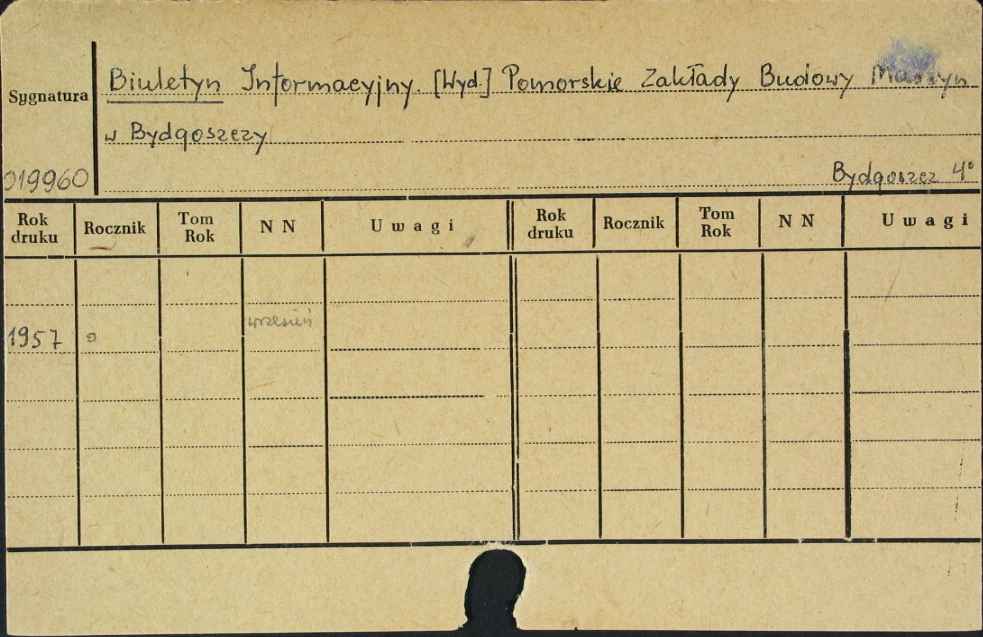 Sygnatura
Biuletyn Informacyjny. [Wyd.] Pomorskie Zakłady Budowy Maszyn
w Bydgoszczy
019960
Bydgoszcz 4°
Rok druku Rocznik Tom Rok NN Uwagi Rok druku Rocznik Tom Rok NN Uwagi
wrzesień
1957